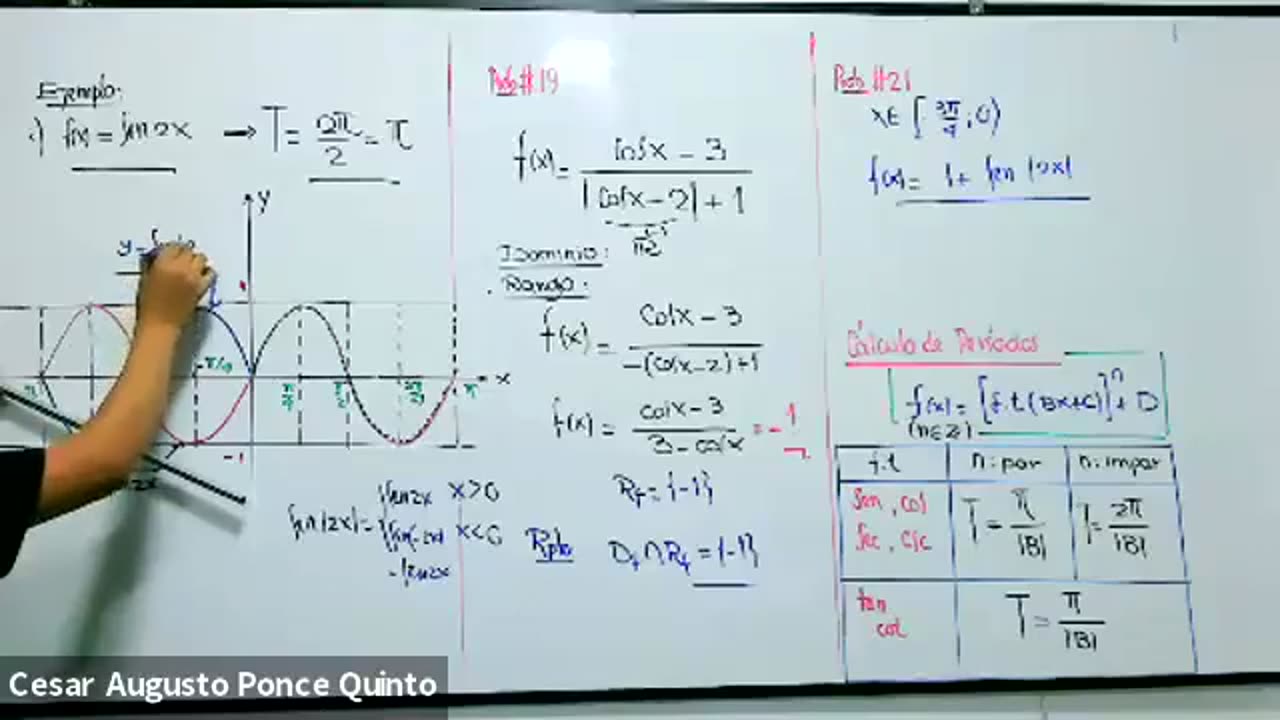 Ejemplo:
.) f(x) = sen 2x → T = 2π/2 = π
y
x
-1
π/4
π/2
3π/4
π
sen|2x| = { sen2x x>0
sen(-2x) x<0
-sen2x
Prob #19
f(x) = cosx - 3 / |cosx - 2| + 1
Dominio:
. Rango:
f(x) = cosx - 3 / -(cosx-2)+1
f(x) = cosx-3 / 3-cosx = -1
Rf = {-1}
Rpta Df ∩ Rf = {-1}
Prob #21
f(x) = 1 + sen |2x|
Cálculo de Períodos
f(x) = [f.t(Bx+C)]ⁿ + D
(n∈Z)
f.t n: par n: impar
sen, cos
sec, csc T = π/|B| T = 2π/|B|
tan
cot T = π/|B|
Cesar Augusto Ponce Quinto